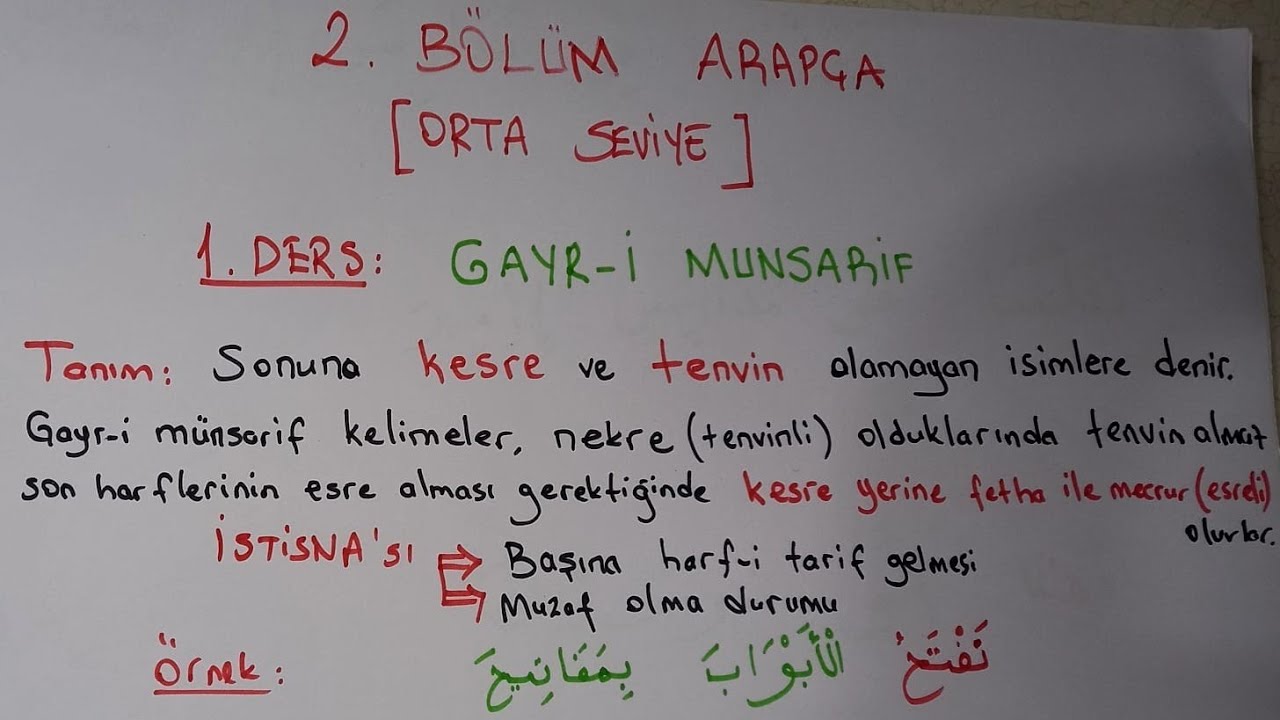 2. BÖLÜM ARAPÇA
[ORTA SEVİYE]
1. DERS: GAYR-İ MUNSARİF
Tanım: Sonuna kesre ve tenvin alamayan isimlere denir.
Gayr-i münsarif kelimeler, nekre (tenvinli) olduklarında tenvin almaz
son harflerinin esre alması gerektiğinde kesre yerine fetha ile mecrur (esreli)
olurlar.
İSTİSNA'sı
Başına harf-i tarif gelmesi
Muzaf olma durumu
Örnek: نَفْتَحُ الْأَبْوَابَ بِمَفَاتِيحَ